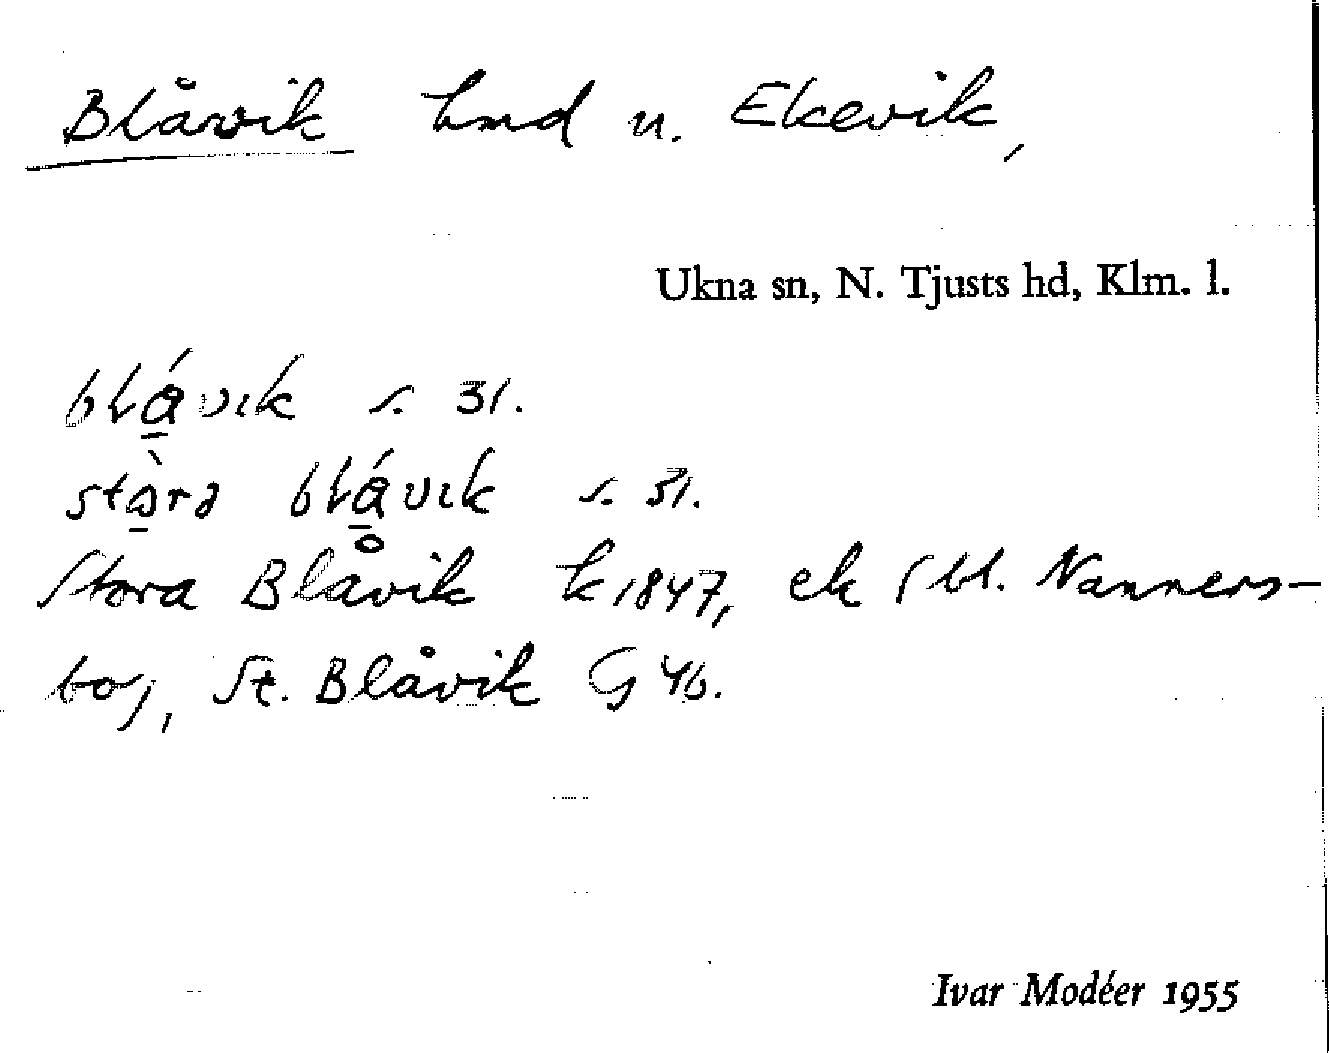 Blåvik lmd u. Ekevik,
Ukna sn, N. Tjusts hd, Klm. l.
blá̱vık s. 31.
stò̱ra blá̱vık s. 31.
Stora Blåvik k 1847, ek bl. Nanners-
boj, St. Blåvik G 46.
Ivar Modéer 1955